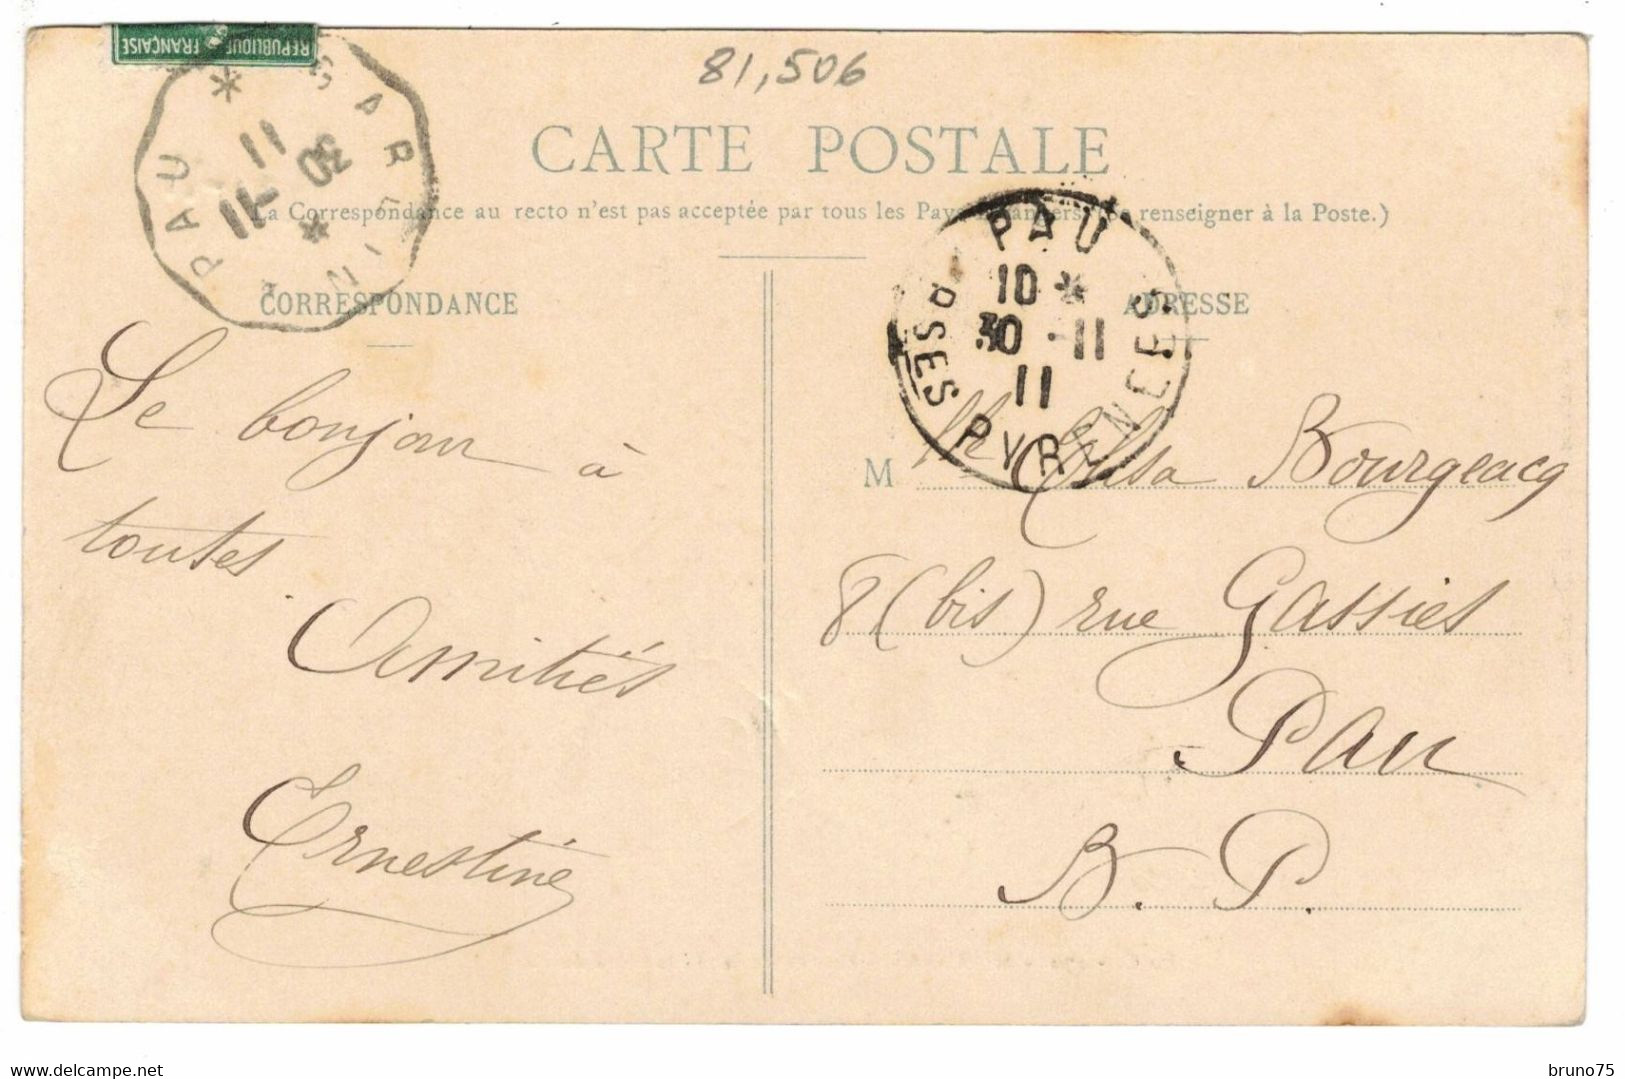 RÉPUBLIQUE FRANÇAISE
81,506
CARTE POSTALE
La Correspondance au recto n'est pas acceptée par tous les Pays (Se renseigner à la Poste.)
PAU
30 -11
11
PAU
10 *
30 -11
11
BSES PYRENEES
CORRESPONDANCE
ADRESSE
Le bonjour à
toutes
Amitiés
Ernestine
M Bourgeacq
8 (bis) rue Gassies
Pau
B. P.
delcampe.net
bruno75